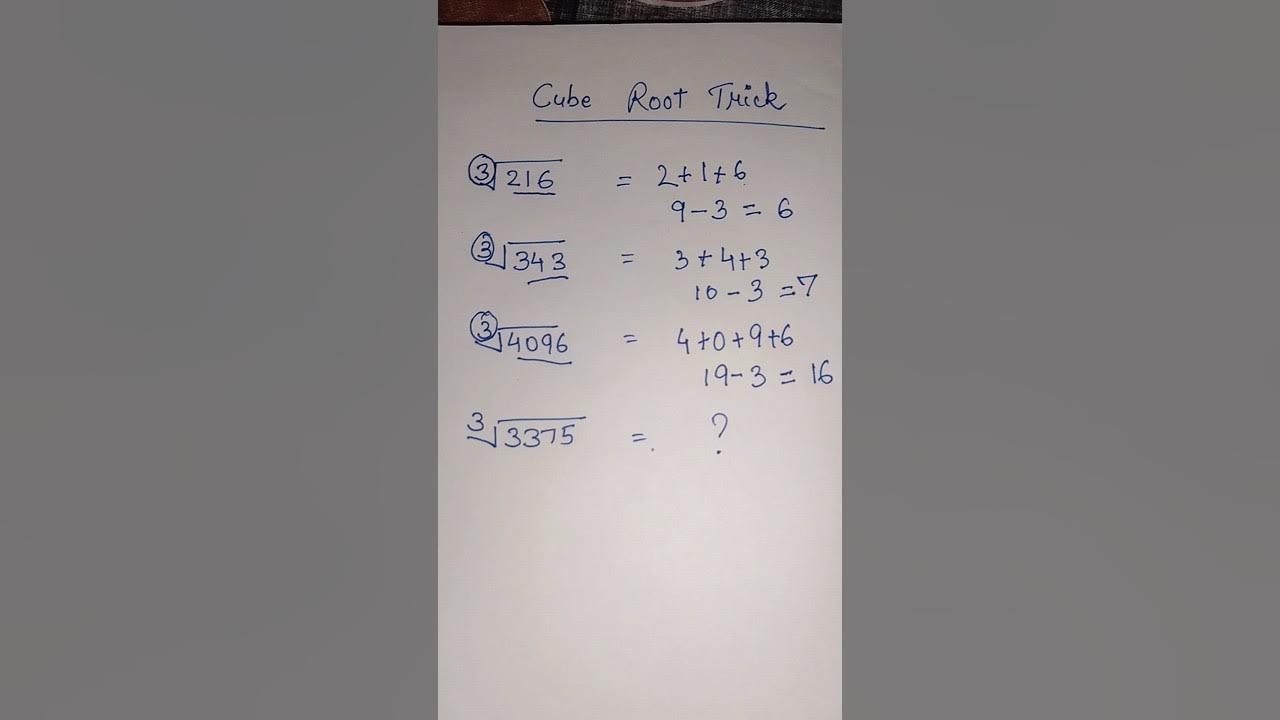 Cube Root Trick
∛216 = 2+1+6
9-3 = 6
∛343 = 3+4+3
10-3 =7
∛4096 = 4+0+9+6
19-3 = 16
∛3375 =. ?